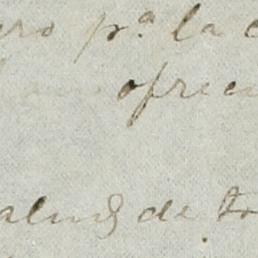 ero pª la c
ofrec
alud de to